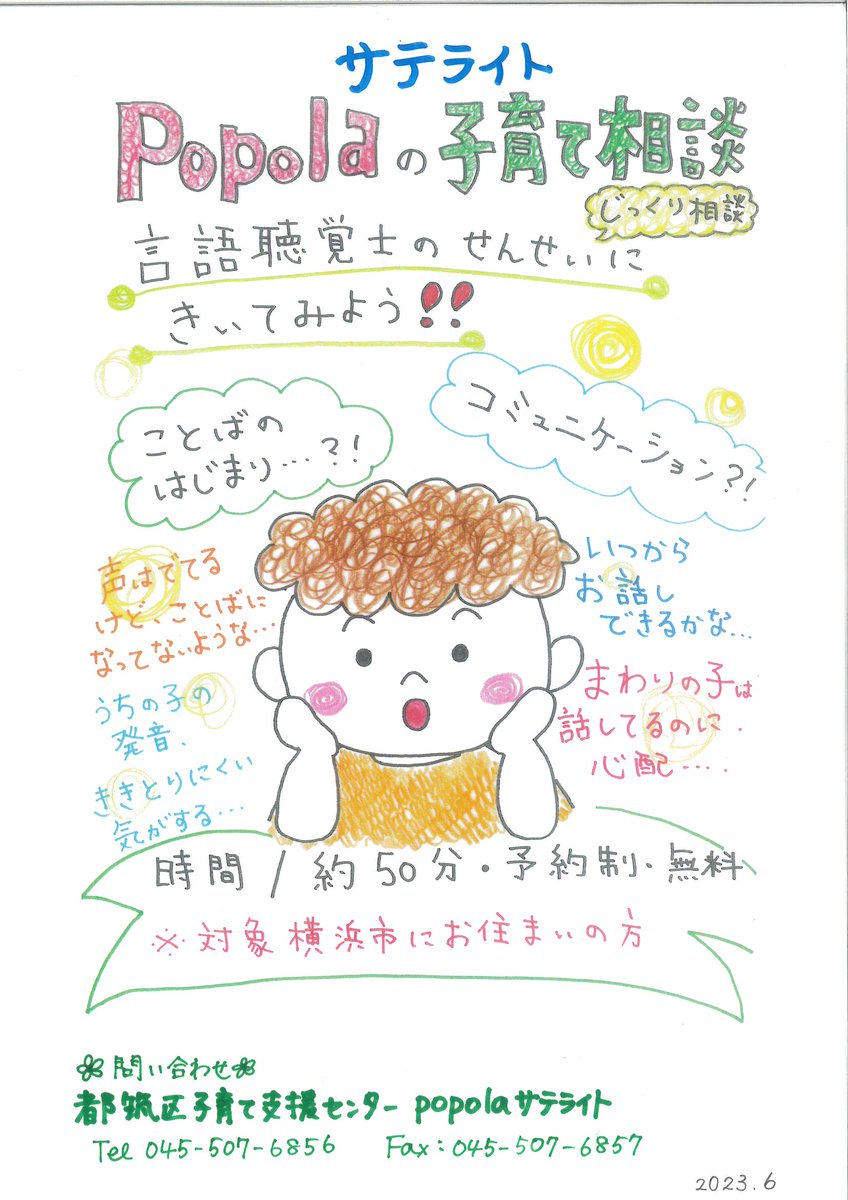 サテライト
Popolaの子育て相談
じっくり相談
言語聴覚士のせんせいに
きいてみよう!!
ことばの
はじまり…?!
コミュニケーション?!
声はでてる
けど、ことばに
なってないような…
いつから
お話し
できるかな…
うちの子の
発音、
ききとりにくい
気がする…
まわりの子は
話してるのに、
心配……
時間/約50分・予約制・無料
※対象 横浜市にお住まいの方
問い合わせ
都筑区子育て支援センター popolaサテライト
Tel 045-507-6856 Fax:045-507-6857
2023.6